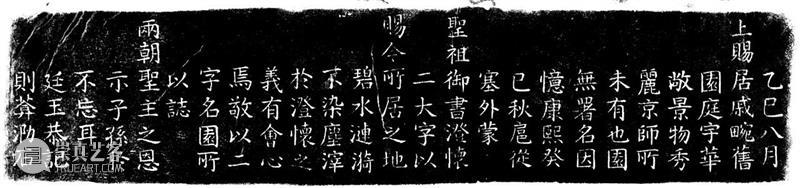 乙巳八月
上賜居戚畹舊
園庭宇華
敞景物秀
麗京師所
未有也園
無署名因
憶康熙癸
巳秋扈從
塞外蒙
聖祖御書澄懷
二大字以
賜今所居之地
碧水漣漪
不染塵滓
於澄懷之
義有會心
焉敬以二
字名園所
以誌
兩朝聖主之恩
示子孫
不忘耳
廷玉恭記
則葊泐石